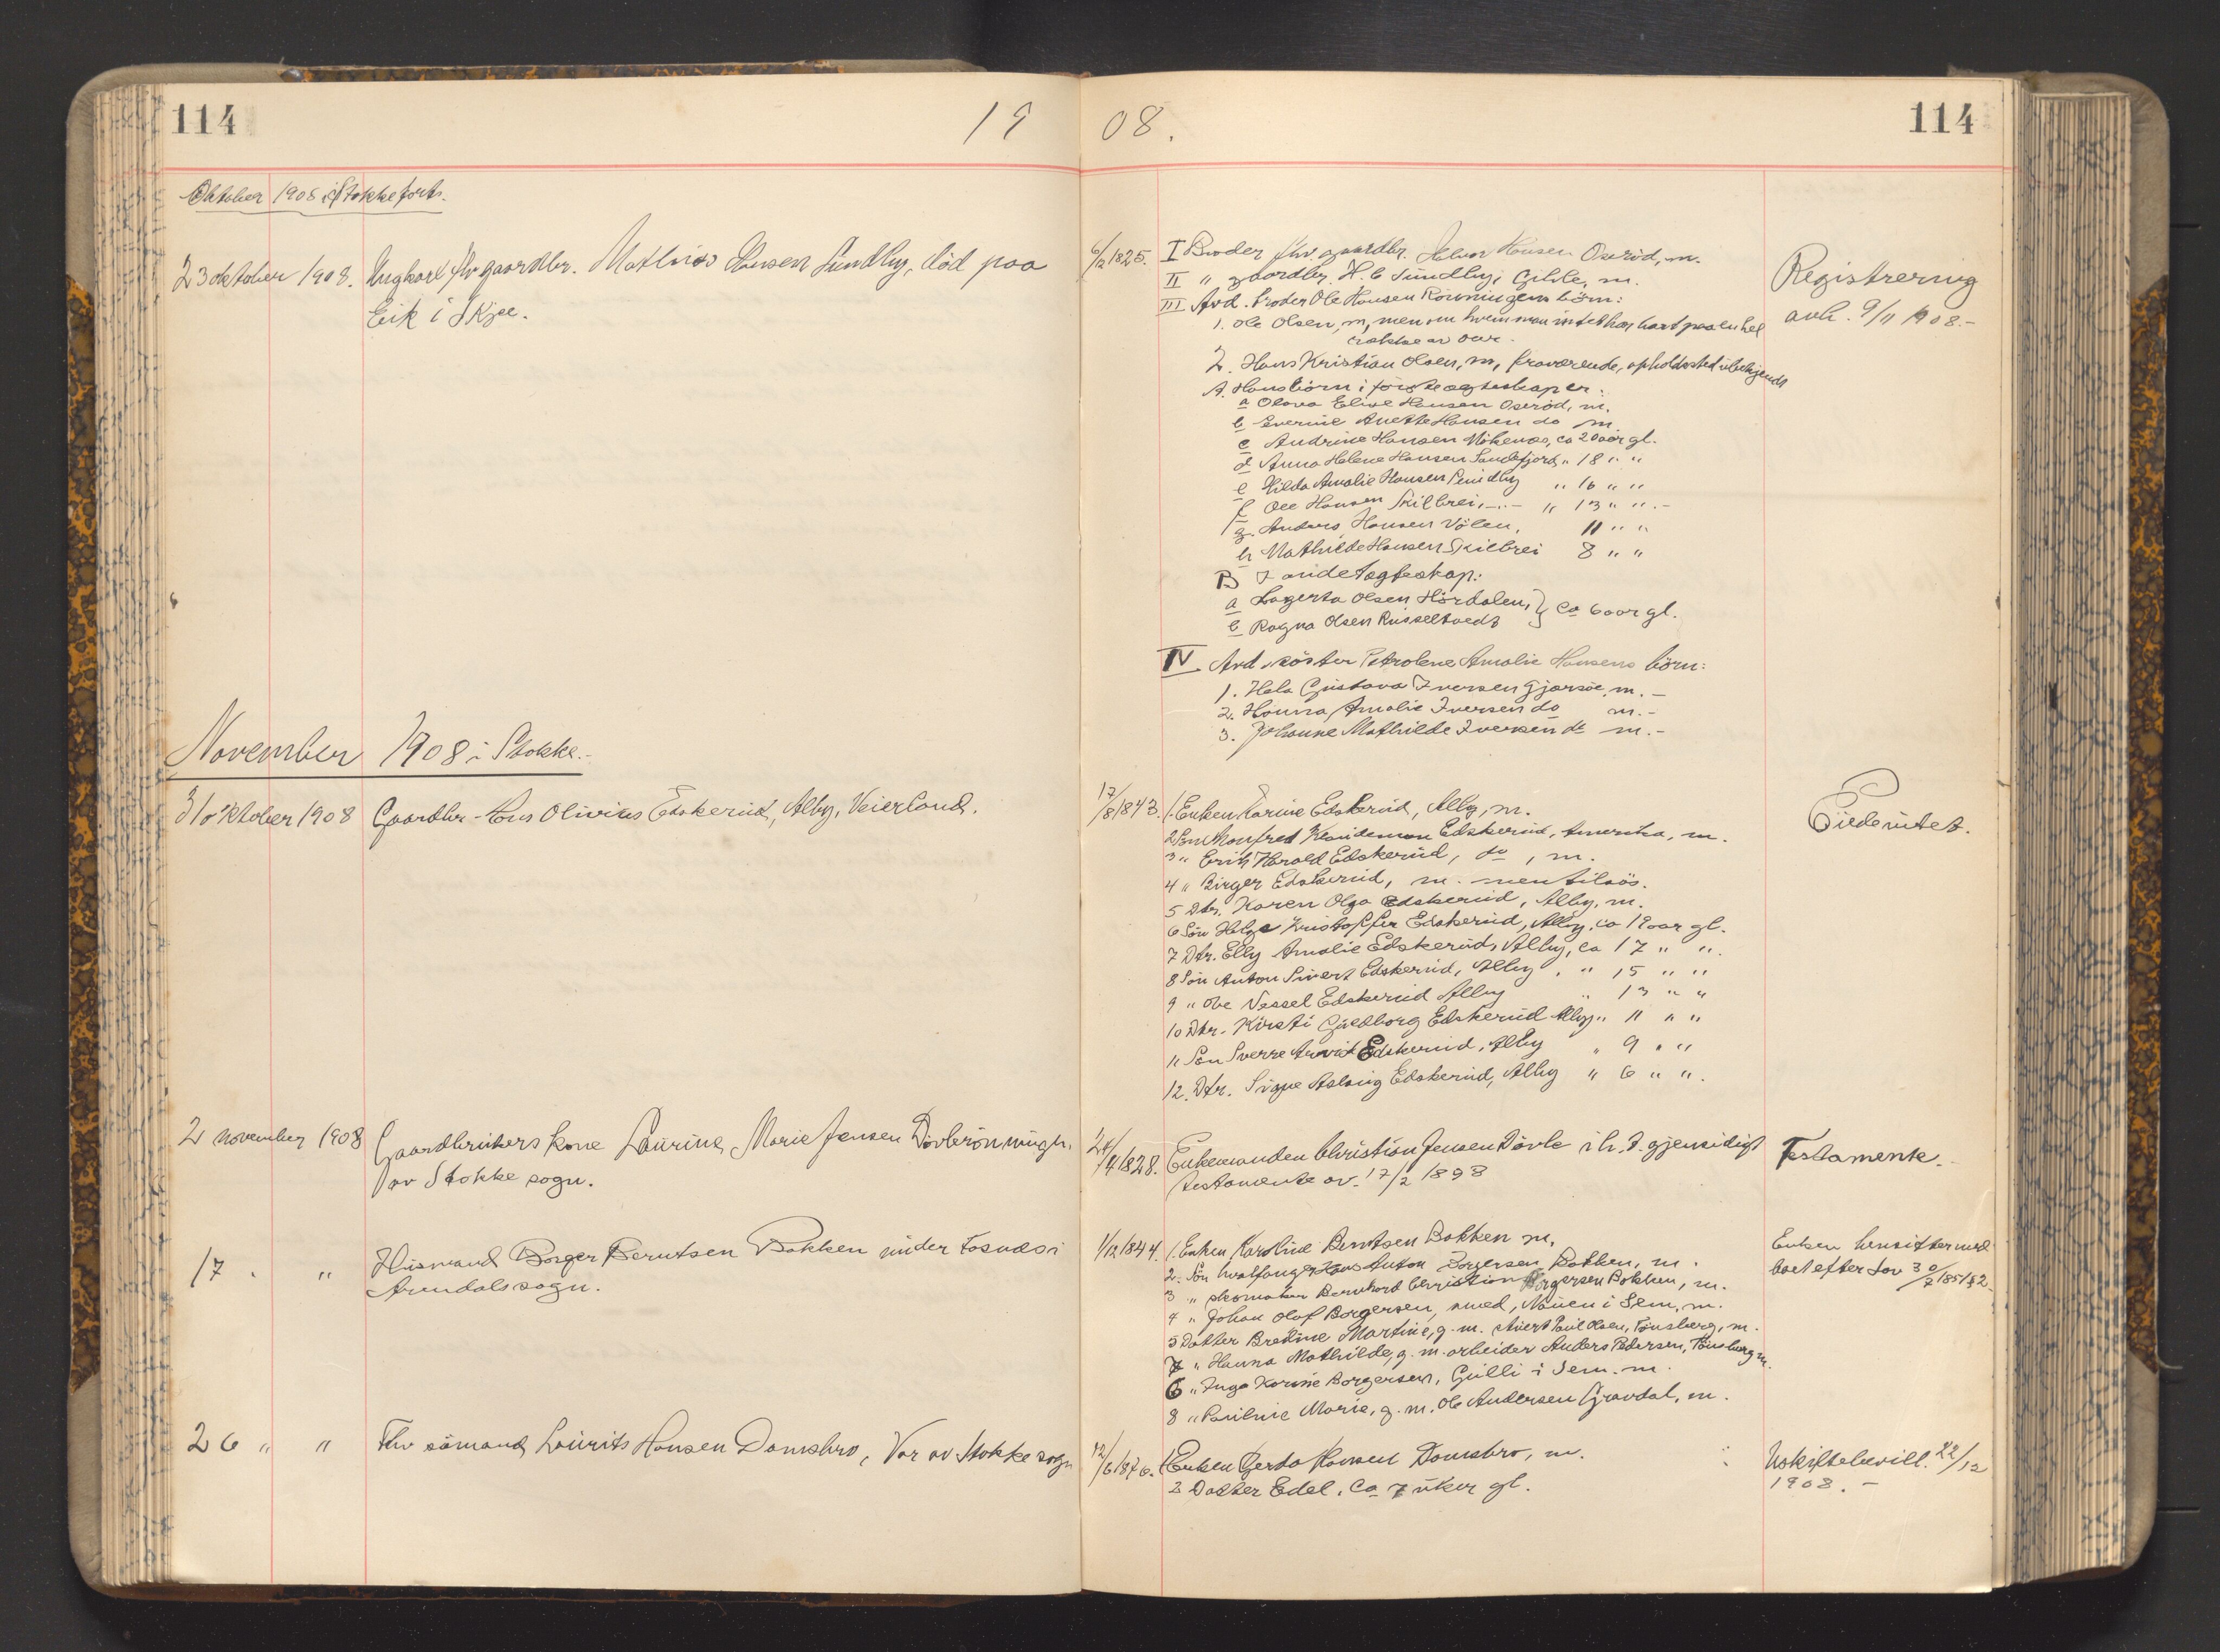 114
19
08.
114
Oktober 1908 i Stokke forts.
23 oktober 1908. Ungkarl fhv gaardbr. Mathias Hansen Sundby, död paa
Eik i Skjee.
6/2 1825. I Broder fhv. gaardbr. Helvor Hansen Oseröd, m.
II " gaardbr. H. C Sundby, Gille, m.
III Avd. broder Ole Hansen Rönningens börn:
1. Ole Olsen, m, men om hvem man intet har hört paa en hel
række av aar.
2. Hans Kristian Olsen, m, fraværende, opholdssted ubekjendt
A. Hans börn i förste ægteskap er:
a Olava Elise Hansen Oseröd, m.
b Severine Anette Hansen do m.
c Andrine Hansen Vökenes, ca 20 aar gl.
d Anna Helene Hansen Sandefjord, " 18 " "
e Hilda Amalie Hansen Sundby " 16 " "
f Ole Hansen Skilbrei, -"- " 13 " ".-
g. Anders Hansen Völen, 11 " "
h Mathilde Hansen Skilbrei 8 " "
B I andet ægteskap:
a Lagerta Olsen Hördalen, } ca 6 aar gl.
b Ragna Olsen Russeltvedt
IV Avd. söster Petrolene Amalie Hansens börn:
1. Hela Gustava Iversen Gjarsöe, m. -
2. Hanna Amalie Iversen do m.-
3. Johanne Mathilde Iversen do m.-
Registrering
avh. 9/11 1908.-
November 1908 i Stokke.-
31 oktober 1908 Gaardbr. Hans Olivius Edskerud, Alby, Veierland.
17/8 1843. 1. Enken Karine Edskerud, Alby, m.
2 Sön Manfred Klaudeman Edskerud, Amerika, m.
3 " Erik Harald Edskerud, do, m.
4 " Birger Edskerud, m. men tilsös.
5 Dtr. Karen Olga Edskerud, Alby, m.
6 Sön Helge Kristoffer Edskerud, Alby, ca 19 aar gl.
7 Dtr. Elly Amalie Edskerud, Alby, ca 17 " ".
8 Sön Anton Sivert Edskerud, Alby, " 15 " "
9 " Ove Vessel Edskerud Alby " 13 " "
10 Dtr. Kirsti Guldborg Edskerud Alby " 11 " "
11 Sön Sverre Arvid Edskerud, Alby " 9 " "
12. Dtr. Signe Aslaug Edskerud, Alby " 6 " ".
Gildeutet.
2 november 1908 Gaardbrukers kone Laurine Marie Jensen Dövlerönningen
av Stokke sogn.
24/4 1828. Enkemanden Christian Jensen Dövle i h. t. gjensidigt
testamente av 17/2 1893
Testamente.
17 " " Husmand Borger Berntsen Bakken under Fosnæs i
Arendals sogn.
1/12 1844. 1. Enken Karoline Berntsen Bakken m.
2. Sön hvalfanger Hans Anton Borgersen Bakken, m.
3 " skomaker Bernhard Christian Borgersen Bakken, m.
4 " Johan Olaf Borgersen, smed, Nauen i Sem, m.
5 Datter Bredine Martine, g. m. Paul Olsen, Tönsberg, m.
7 " Hanna Mathilde, g. m. arbeider Anders Pedersen, Tönsberg m.
6 " Inga Karine Borgersen, Gulli i Sem. m.
8 " Pauline Marie, g. m. Ole Andersen Gravdal, m.
Enken hensitter med
boet efter Lov 30/7 1851 § 2.
26 " " Fhv sömand Laurits Hansen Damsbro, Var av Stokke sogn
12/6 1876. 1 Enken Gerda Hansen Damsbro, m.
2 Datter Edel, ca 7 uker gl.
Uskiftebevill. 22/12
1908. -